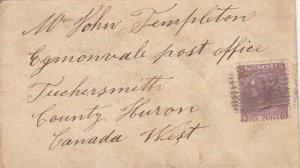 Mr John Templeton
Egmonvale post office
Tuckersmith
County Huron
Canada West
SIX PENCE